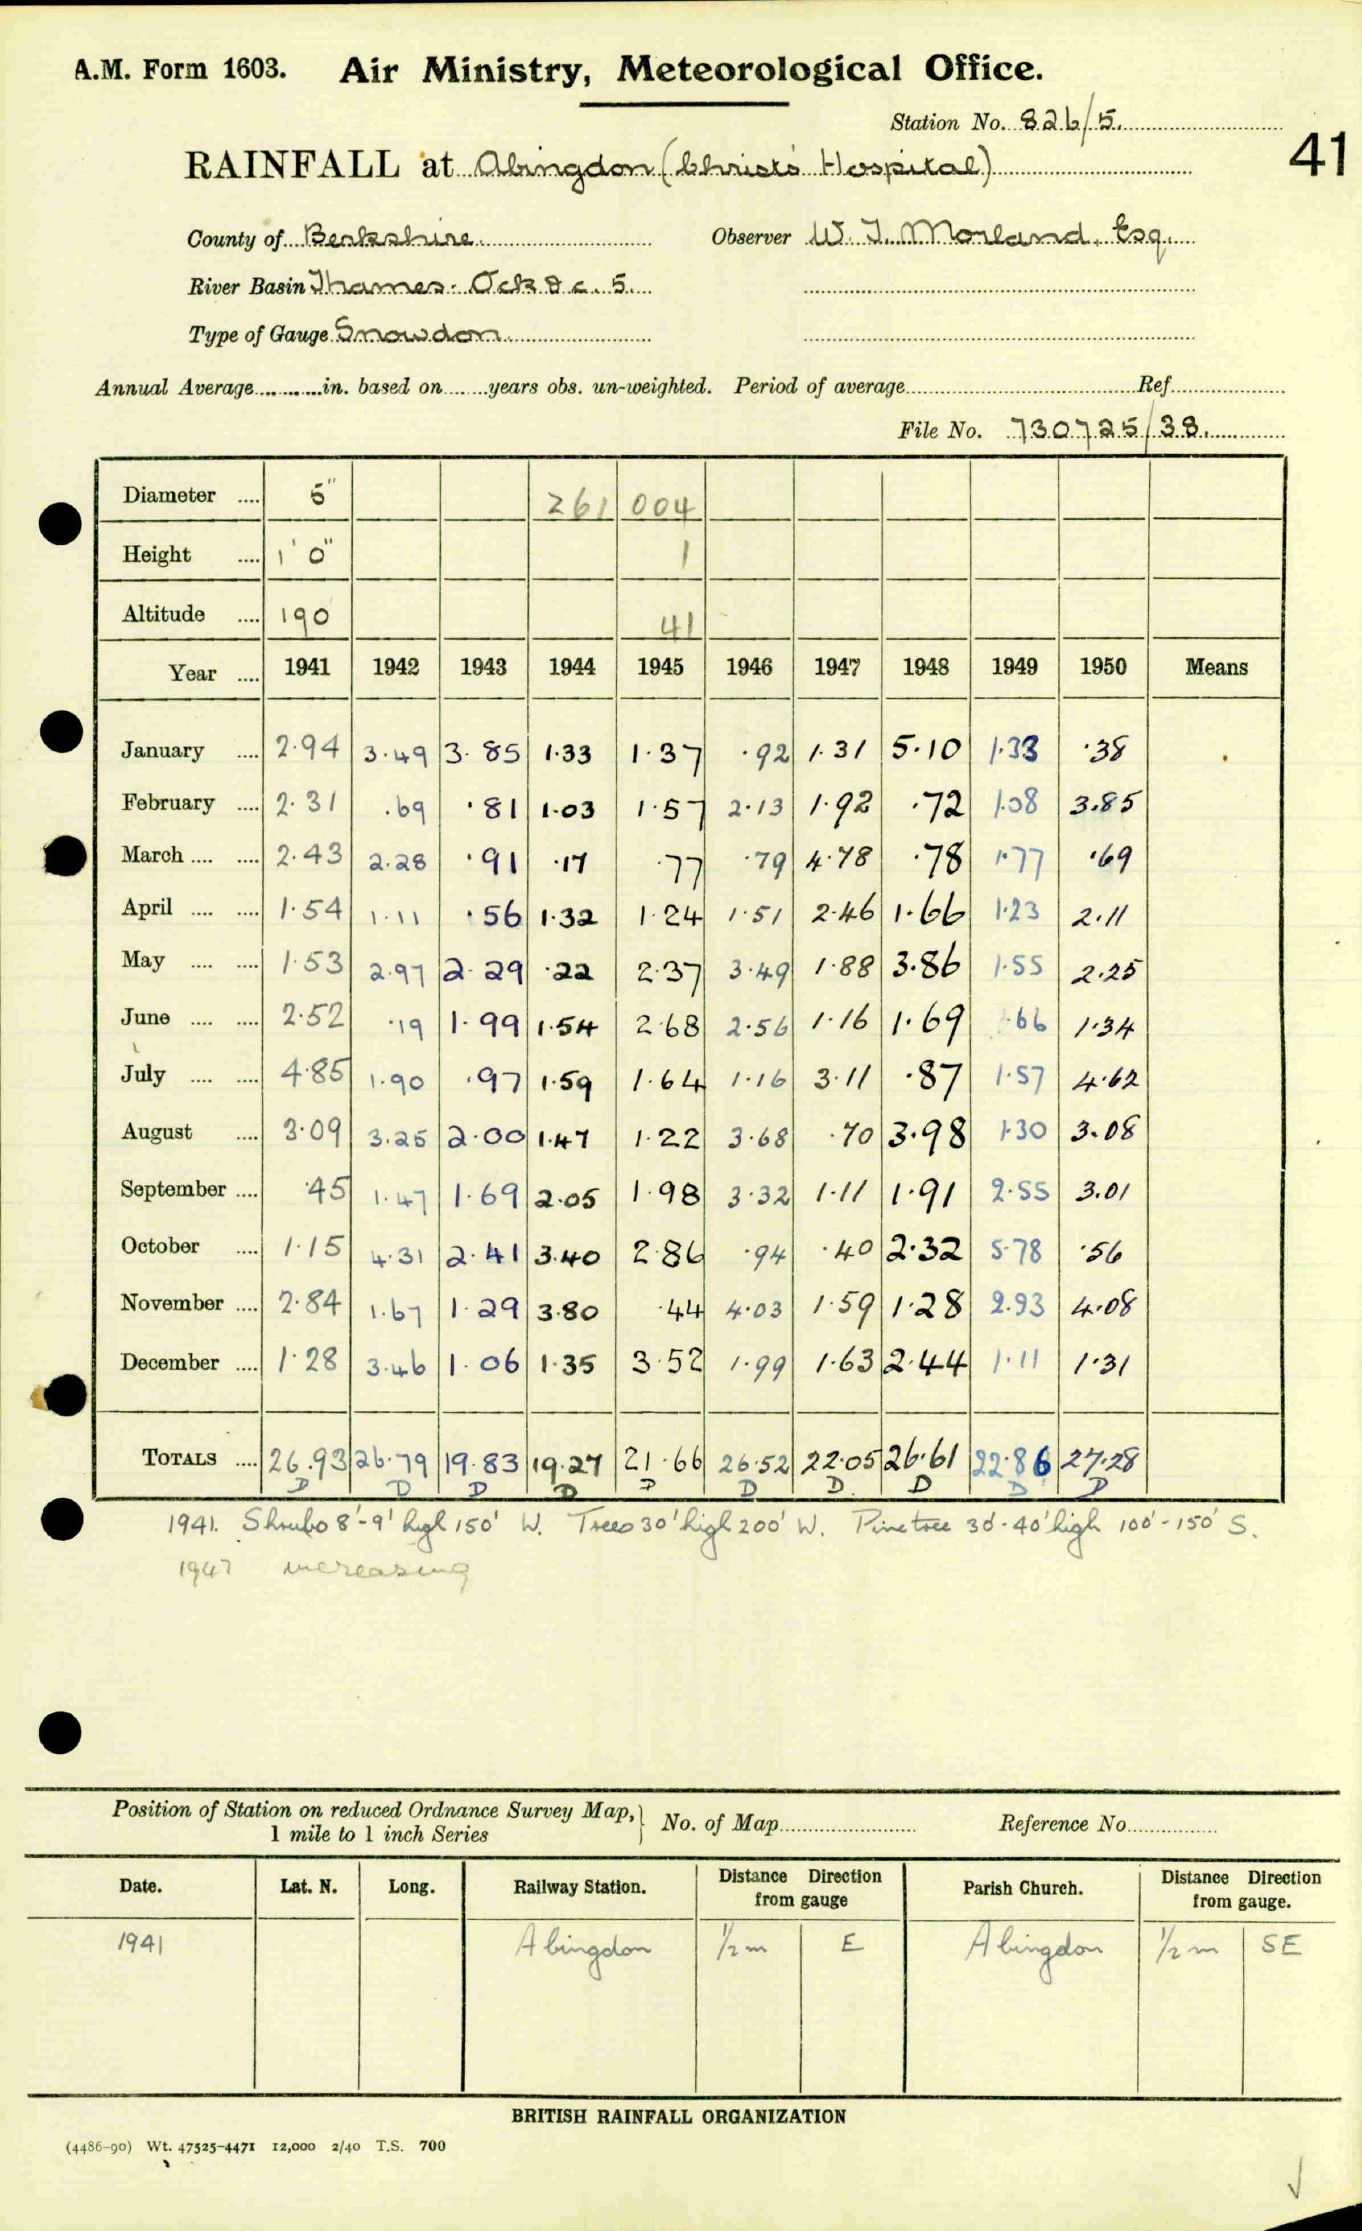 A.M. Form 1603. Air Ministry, Meteorological Office.
Station No. 826/5.
41
RAINFALL at Abingdon (Christ's Hospital)
County of Berkshire. Observer W. J. Morland, Esq.
River Basin Thames. Ock &c. 5.
Type of Gauge Snowdon.
Annual Average in. based on years obs. un-weighted. Period of average Ref
File No. 730725/38.
Diameter 5" 261 004
Height 1' 0" 1
Altitude 190 41
Year 1941 1942 1943 1944 1945 1946 1947 1948 1949 1950 Means
January 2.94 3.49 3.85 1.33 1.37 .92 1.31 5.10 1.33 .38
February 2.31 .69 .81 1.03 1.57 2.13 1.92 .72 1.08 3.85
March 2.43 2.28 .91 .17 .77 .79 4.78 .78 1.77 .69
April 1.54 1.11 .56 1.32 1.24 1.51 2.46 1.66 1.23 2.11
May 1.53 2.97 2.29 .22 2.37 3.49 1.88 3.86 1.55 2.25
June 2.52 .19 1.99 1.54 2.68 2.56 1.16 1.69 .66 1.34
July 4.85 1.90 .97 1.59 1.64 1.16 3.11 .87 1.57 4.62
August 3.09 3.25 2.00 1.47 1.22 3.68 .70 3.98 1.30 3.08
September .45 1.47 1.69 2.05 1.98 3.32 1.11 1.91 2.55 3.01
October 1.15 4.31 2.41 3.40 2.86 .94 .40 2.32 5.78 .56
November 2.84 1.67 1.29 3.80 .44 4.03 1.59 1.28 2.93 4.08
December 1.28 3.46 1.06 1.35 3.52 1.99 1.63 2.44 1.11 1.31
TOTALS 26.93 26.79 19.83 19.27 21.66 26.52 22.05 26.61 22.86 27.28
D D D D D D D. D D D
1941. Shrubs 8'-9' high 150' W. Trees 30' high 200' W. Pine tree 30'-40' high 100'-150' S.
1947 increasing
Position of Station on reduced Ordnance Survey Map, 1 mile to 1 inch Series } No. of Map Reference No.
Date. Lat. N. Long. Railway Station. Distance Direction from gauge Parish Church. Distance Direction from gauge.
1941 Abingdon 1/2 m E Abingdon 1/2 m SE
BRITISH RAINFALL ORGANIZATION
(4486-90) Wt. 47525-4471 12,000 2/40 T.S. 700